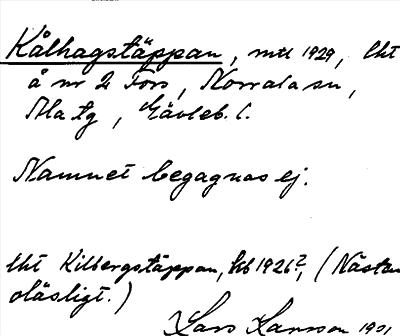 Kålhagstäppan, mtl 1929, lht
å nr 2 Fors, Norrala sn,
Ala tg, Gävleb. l.
Namnet begagnas ej.
lht Kilbergstäppan, hb 1926?, (Nästan
oläsligt.)
Lars Larsson 1901